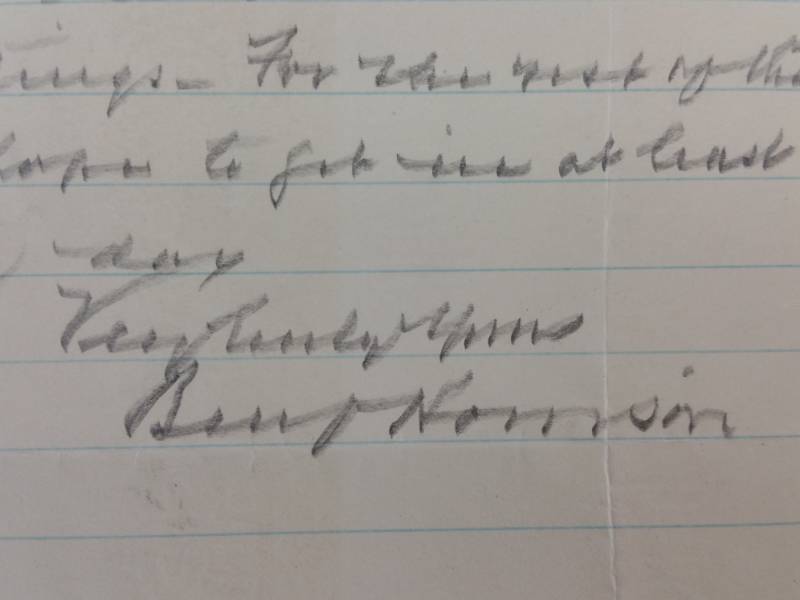 For the rest of the
hope to get in at least
day
Very truly yours
Benj Harrison